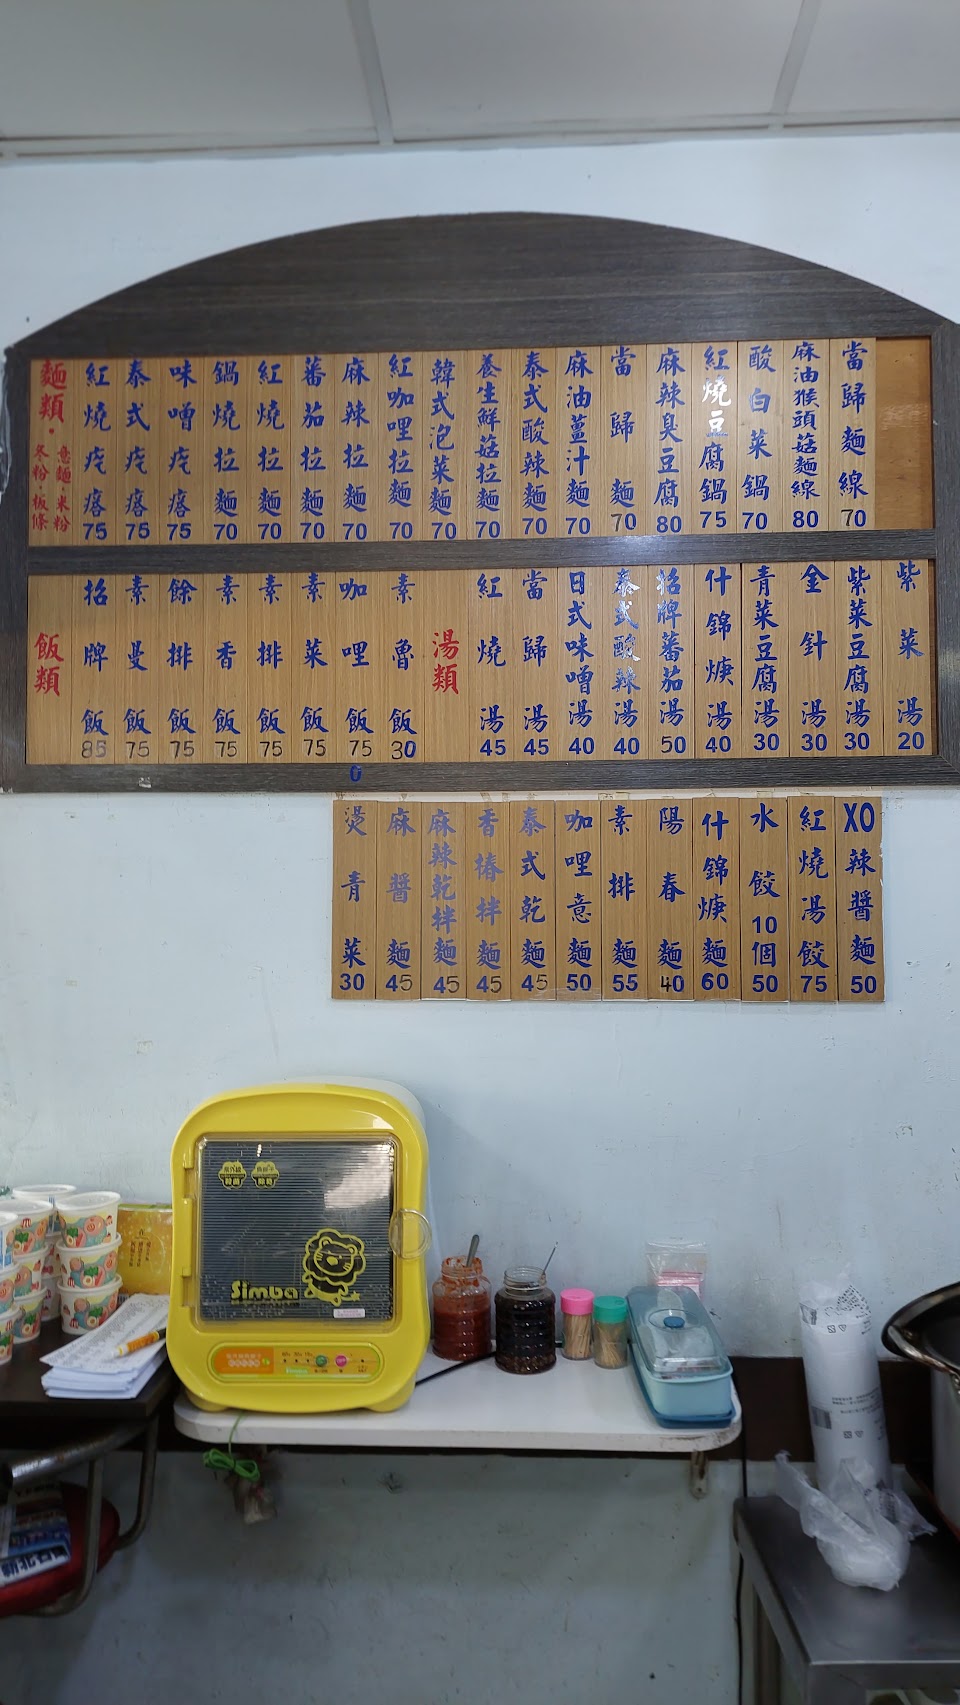 麵類・意麵米粉冬粉板條
紅燒疙瘩75
泰式疙瘩75
味噌疙瘩75
鍋燒拉麵70
紅燒拉麵70
蕃茄拉麵70
麻辣拉麵70
紅咖哩拉麵70
韓式泡菜麵70
養生鮮菇拉麵70
泰式酸辣麵70
麻油薑汁麵70
當歸麵70
麻辣臭豆腐80
紅燒豆腐鍋75
酸白菜鍋70
麻油猴頭菇麵線80
當歸麵線70
飯類
招牌飯85
素曼飯75
餘排飯75
素香飯75
素排飯75
素菜飯75
咖哩飯75
0
素魯飯30
湯類
紅燒湯45
當歸湯45
日式味噌湯40
泰式酸辣湯40
招牌蕃茄湯50
什錦焿湯40
青菜豆腐湯30
金針湯30
紫菜豆腐湯30
紫菜湯20
燙青菜30
麻醬麵45
麻辣乾拌麵45
香椿拌麵45
泰式乾麵45
咖哩意麵50
素排麵55
陽春麵40
什錦焿麵60
水餃10個50
紅燒湯餃75
XO辣醬麵50
Simba